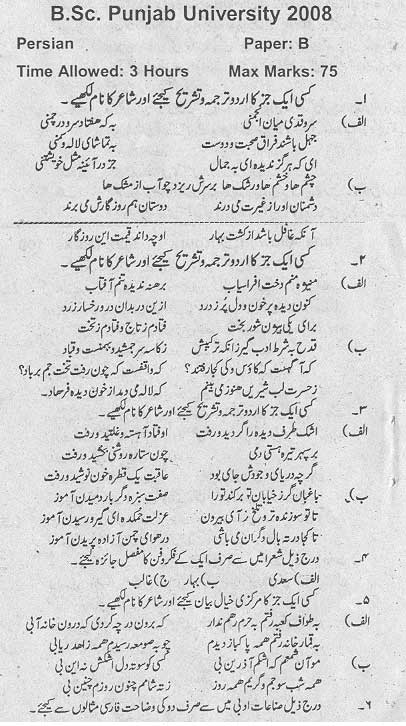 B.Sc. Punjab University 2008
Persian Paper: B
Time Allowed: 3 Hours Max Marks: 75
۱۔ کسی ایک جز کا اردو ترجمہ و تشریح کیجئے اور شاعر کا نام لکھیے۔
الف) سرو قدی میان انجمنی بہ کہ ہفتاد سرو در چمنی
جہل باشد فراق صحبت دوست بہ تماشای لالہ و کنی
ای کہ ہرگز ندیدہ ای بہ جمال جز در آئینہ مثل خویشتنی
ب) چشم ها و خشم ها و رشک ها برسرش ریزد چو آب از مشک ها
دشمنان او را ز غیرت می درند دوستان ہم روزگارش می برند
آنکہ غافل باشد از کشت بہار او چہ داند قیمت این روزگار
۲۔ کسی ایک جز کا اردو ترجمہ و تشریح کیجئے اور شاعر کا نام لکھیے۔
الف) منیژہ منم دخت افراسیاب برهنہ ندیدہ تنم آفتاب
کنون دیدہ پرخون و دل پر ز درد ازین در بدان در و رخسارہ زرد
برای یکی بیژن شور بخت فتادم ز تاج و فتادم ز تخت
ب) قدح بہ شرط ادب گیر زانکہ ترکیبش ز کاسہ سر جمشید و بہمنست و قباد
کہ آگہست کہ کاؤس و کی کجا رفتند؟ کہ واقفست کہ چون رفت تخت جم برباد؟
ز حسرت لب شیرین ہنوز می بینم کہ لالہ می دمد از خون دیدہ فرھاد۔
۳۔ کسی ایک جز کا اردو ترجمہ و تشریح کیجئے اور شاعر کا نام لکھیے۔
الف) اشک طرف دیدہ را گردید و رفت اوفتاد آہستہ و غلتید و رفت
بر سپہر تیرہ ہستی دمی چون ستارہ روشنی بخشید و رفت
گرچہ دریای وجودش جای بود عاقبت یک قطرہ خون نوشید و رفت
ب) باغبان گر ز خیابان تو برکند تورا صفت سبزہ دگر بار دمیدن آموز
تا تو سوزندہ تر و تلخ ز آی بیرون عزلت خمکدہ ای گیر و رسیدن آموز
تا کجا در تہ بال دگران می باشی در ہوای چمن آزادہ پریدن آموز
۴۔ درج ذیل شعرا میں سے صرف ایک کے فکر و فن کا مفصل جائزہ لیجئے۔
الف) سعدی ب) بہار ج) غالب
۵۔ کسی ایک جز کا مرکزی خیال بیان کیجئے اور شاعر کا نام لکھیے۔
الف) بہ طواف کعبہ رفتم بہ حرم رھم ندارند کہ برون در چہ کردی کہ درون خانہ آیی
بہ قمار خانہ رفتم ہمہ پاکباز دیدم چو بہ صومعہ رسیدم ہمہ زاھد ریایی
ب) ہمہ شب سوجم و گریم ہمہ روز ز تہ شامم چنون روزم چنین بی
۶۔ درج ذیل صناعات ادبی میں سے صرف دو کی وضاحت فارسی مثالوں سے کیجئے۔